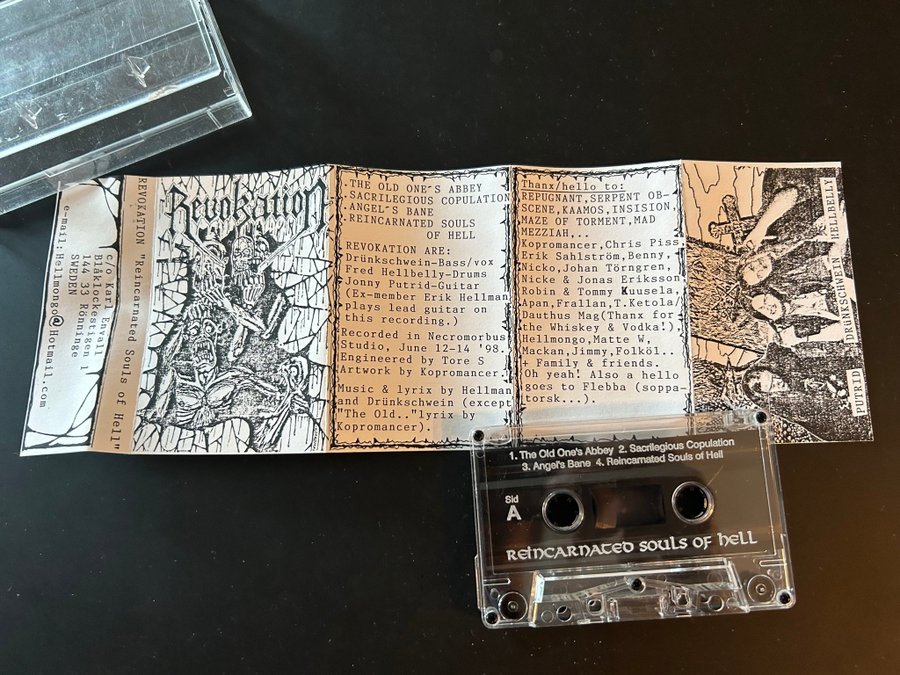 e-mail:Hellmongo@Hotmail.com
c/o Karl Envall
Blåklockestigen 1
144 33 Rönninge
SWEDEN
REVOKATION "Reincarnated Souls of Hell"
Revokation
.THE OLD ONE´S ABBEY
.SACRILEGIOUS COPULATION
.ANGEL´S BANE
.REINCARNATED SOULS
OF HELL
REVOKATION ARE:
Drünkschwein-Bass/vox
Fred Hellbelly-Drums
Jonny Putrid-Guitar
(Ex-member Erik Hellman
plays lead guitar on
this recording.)
Recorded in Necromorbus
Studio, June 12-14 '98.
Engineered by Tore S
Artwork by Kopromancer.
Music & lyrix by Hellman
and Drünkschwein (except
"The Old.."lyrix by
Kopromancer).
Thanx/hello to:
REPUGNANT,SERPENT OB-
SCENE,KAAMOS,INSISION,
MAZE OF TORMENT,MAD
MEZZIAH,..
Kopromancer,Chris Piss
Erik Sahlström,Benny,
Nicko,Johan Törngren,
Nicke & Jonas Eriksson
Robin & Tommy Kuusela,
Apan,Frallan,T.Ketola/
Dauthus Mag(Thanx for
the Whiskey & Vodka!),
Hellmongo,Matte W,
Mackan,Jimmy,Folköl..
Family & friends.
Oh yeah! Also a hello
goes to Flebba (soppa-
torsk...).
PUTRID
DRÜNKSCHWEIN
HELLBELLY
1. The Old One's Abbey 2. Sacrilegious Copulation
3. Angel's Bane 4. Reincarnated Souls of Hell
Sid
A
Reincarnated Souls of Hell